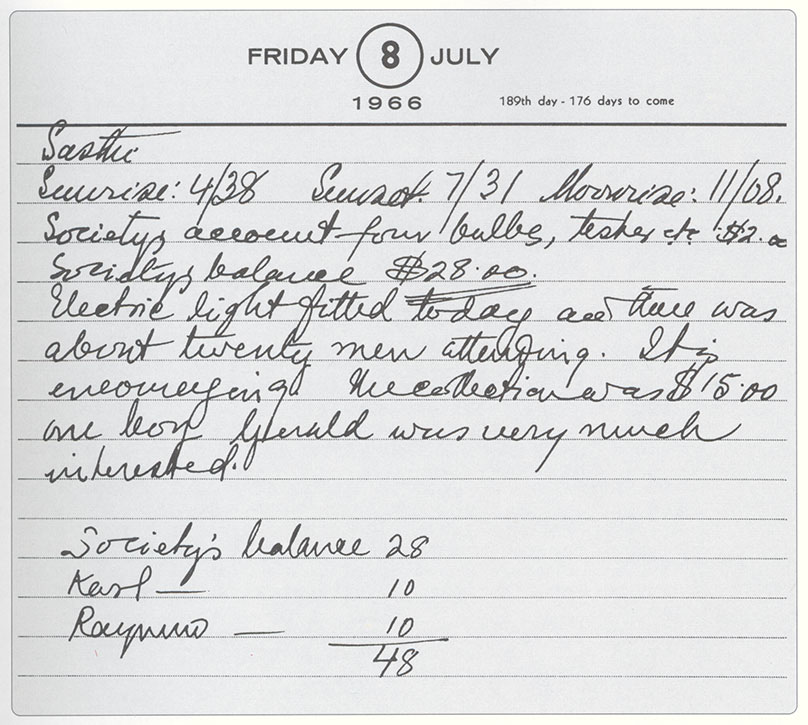 FRIDAY 8 JULY
1966 189th day - 176 days to come
Sasthi
Sunrise: 4/38 Sunset: 7/31 Moonrise: 11/08.
Society's account four bulbs, tester etc. $2.00
Society's balance $28.00.
Electric light fitted today and there was
about twenty men attending. It is
encouraging. The collection was $15.00
one boy Gerald was very much
interested.
Society's balance 28
Karl — 10
Raymund — 10
48